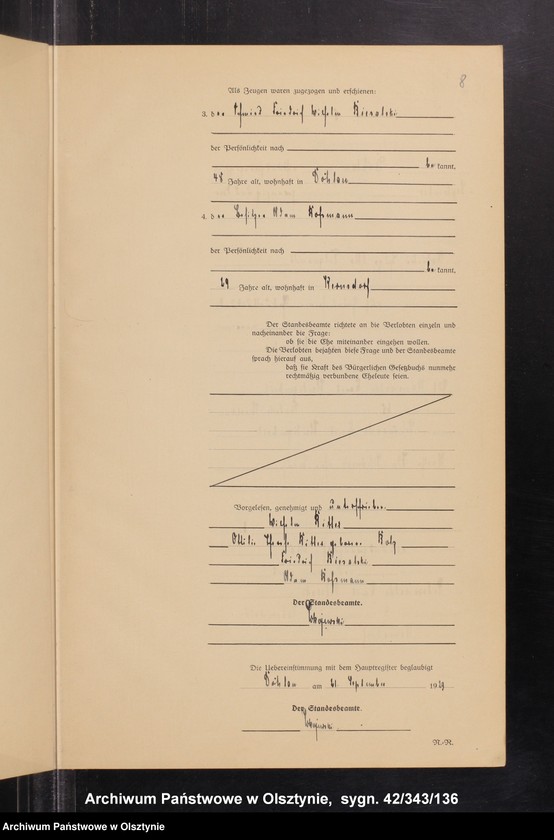 8
Als Zeugen waren zugezogen und erschienen:
3. der Schmied Friedrich Wilhelm
der Persönlichkeit nach
be kannt,
48 Jahre alt, wohnhaft in Döhlau
4. der Besitzer Adam
der Persönlichkeit nach
be kannt,
29 Jahre alt, wohnhaft in
Der Standesbeamte richtete an die Verlobten einzeln und
nacheinander die Frage:
ob sie die Ehe miteinander eingehen wollen.
Die Verlobten bejahten diese Frage und der Standesbeamte
sprach hierauf aus,
daß sie kraft des Bürgerlichen Gesetzbuchs nunmehr
rechtmäßig verbundene Eheleute seien.
Vorgelesen, genehmigt und unterschrieben
Wilhelm
geborene
Friedrich
Adam
Der Standesbeamte.
Die Uebereinstimmung mit dem Hauptregister beglaubigt
Döhlau am September 19
Der Standesbeamte.
N.-R.
Archiwum Państwowe w Olsztynie, sygn. 42/343/136
Archiwum Państwowe w Olsztynie